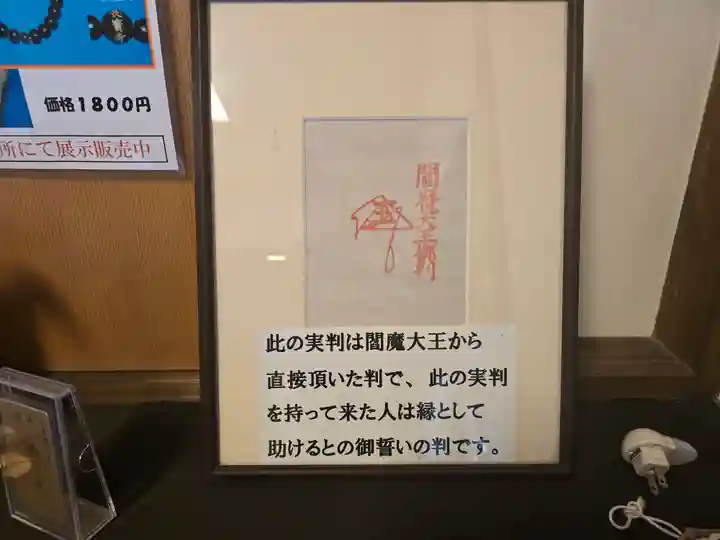 価格1800円
所にて展示販売中
閻魔大王御判
此の実判は閻魔大王から
直接頂いた判で、此の実判
を持って来た人は縁として
助けるとの御誓いの判です。